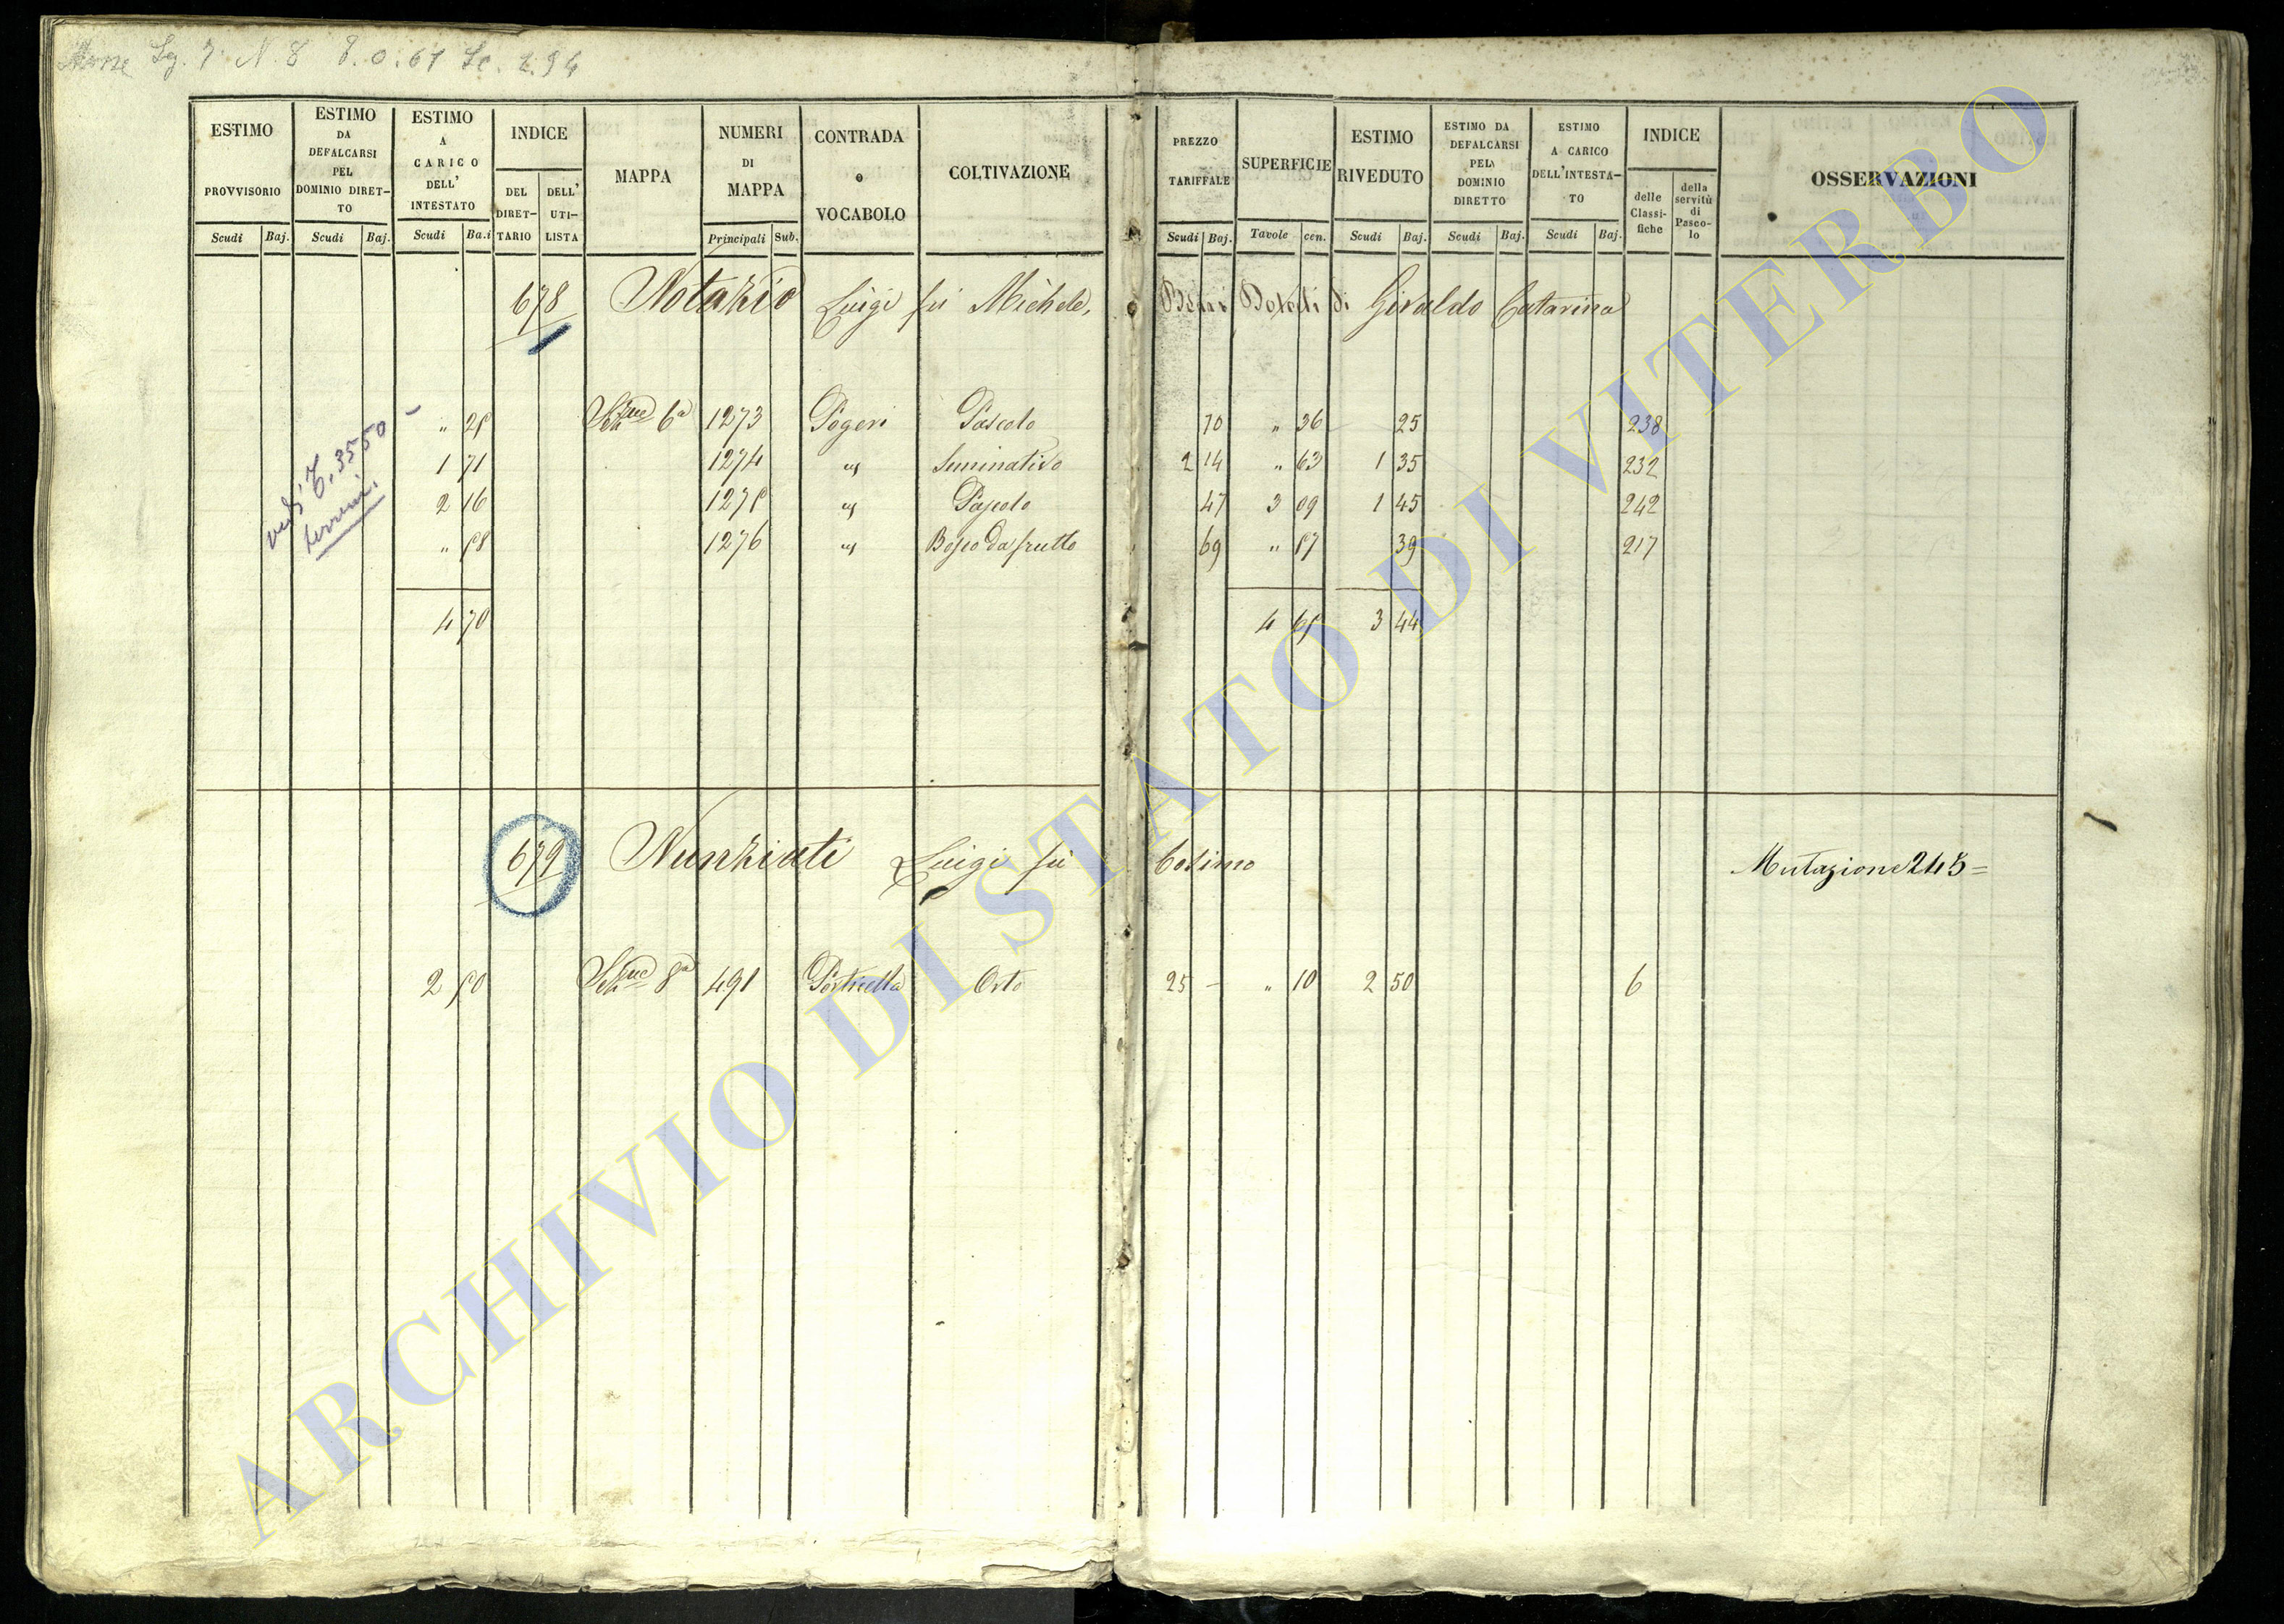 Sez. 7 N. 8 8.0.67 Sc. 2.94
ESTIMO
PROVVISORIO
Scudi Baj.
ESTIMO
DA
DEFALCARSI
PEL
DOMINIO DIRET-
TO
Scudi Baj.
ESTIMO
A
CARICO
DELL'
INTESTATO
Scudi Ba.i
INDICE
DEL
DIRET-
TARIO
DELL'
UTI-
LISTA
MAPPA
NUMERI
DI
MAPPA
Principali Sub.
CONTRADA
o
VOCABOLO
COLTIVAZIONE
PREZZO
TARIFFALE
Scudi Baj.
SUPERFICIE
Tavole cen.
ESTIMO
RIVEDUTO
Scudi Baj.
ESTIMO DA
DEFALCARSI
PEL
DOMINIO
DIRETTO
Scudi Baj.
ESTIMO
A CARICO
DELL'INTESTA-
TO
Scudi Baj.
INDICE
delle
Classi-
fiche
della
servitù
di
Pasco-
lo
OSSERVAZIONI
678 Notazio Luigi fu Michele, Beni Dotali di Giraldo Catarina
vedi T. 3550
terreni.
" 25 Sezne 6a 1273 Pogeri Pascolo 70 " 36 25 238
1 71 1274 " Seminativo 2 14 " 63 1 35 232
2 16 1275 " Pascolo 47 3 09 1 45 242
" 58 1276 " Bosco da frutto 69 " 57 39 217
4 70 4 65 3 44
679 Nunziati Luigi fu Cosimo Mutazione 245=
2 50 Sezne 8a 491 Porticella Orto 25 - " 10 2 50 6
ARCHIVIO DI STATO DI VITERBO